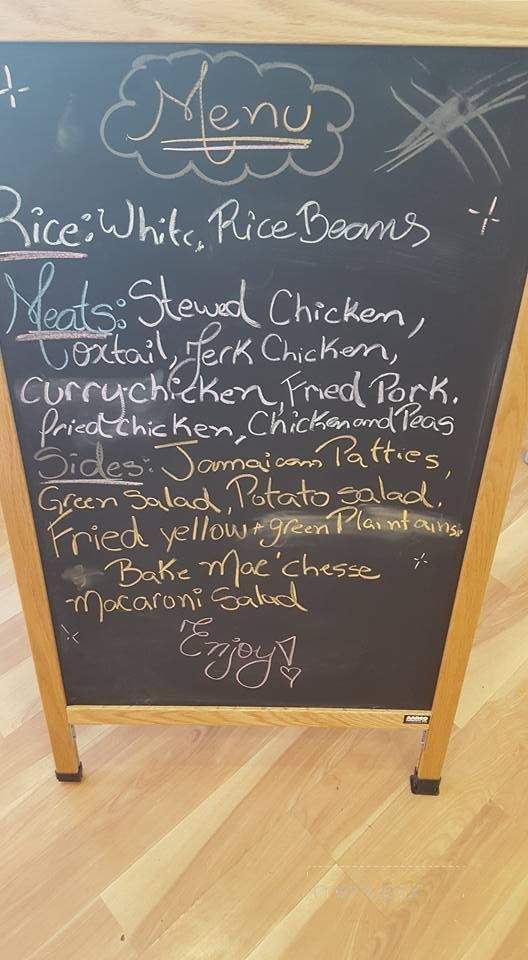 Menu
Rice: White, Rice Beans
Meats: Stewed Chicken,
oxtail, Jerk Chicken,
curry chicken, Fried Pork.
fried chicken, Chicken and Peas
Sides: Jamaican Patties,
Green Salad, Potato salad.
Fried yellow + green Plaintains
Bake Mac'chesse
Macaroni Salad
Enjoy!